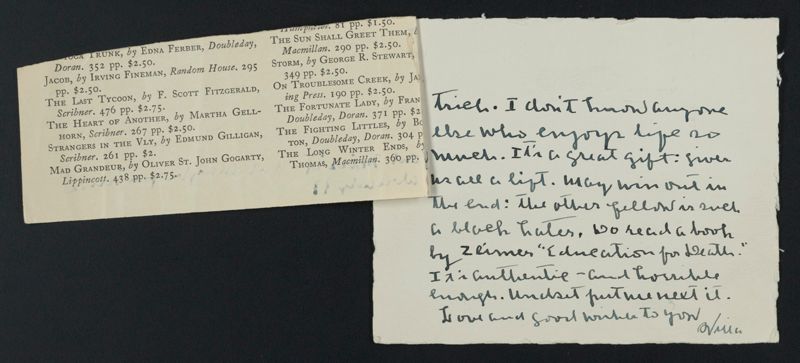 Humphries. 81 pp. $1.50.
TRUNK, by EDNA FERBER, Doubleday,
Doran. 352 pp. $2.50.
JACOB, by IRVING FINEMAN, Random House. 295
pp. $2.50.
THE LAST TYCOON, by F. SCOTT FITZGERALD,
Scribner. 476 pp. $2.75.
THE HEART OF ANOTHER, by MARTHA GELL-
HORN, Scribner. 267 pp. $2.50.
STRANGERS IN THE VLY, by EDMUND GILLIGAN,
Scribner. 261 pp. $2.
MAD GRANDEUR, by OLIVER ST. JOHN GOGARTY,
Lippincott. 438 pp. $2.75.
THE SUN SHALL GREET THEM,
Macmillan. 290 pp. $2.50.
STORM, by GEORGE R. STEWART,
349 pp. $2.50.
ON TROUBLESOME CREEK, by JA
ing Press. 190 pp. $2.50.
THE FORTUNATE LADY, by FRAN
Doubleday, Doran. 371 pp. $2
THE FIGHTING LITTLES, by BO
TON, Doubleday, Doran. 304 p
THE LONG WINTER ENDS, by
THOMAS, Macmillan. 360 pp.
trick. I don't know anyone
else who enjoys life so
much. It's a great gift: gives
us all a lift. May win out in
the end: the other fellow is such
a black hater. Do read a book
by Zeimer "Education for Death."
It's authentic - and horrible
enough. Undset put me next it.
Love and good wishes to you
Willa